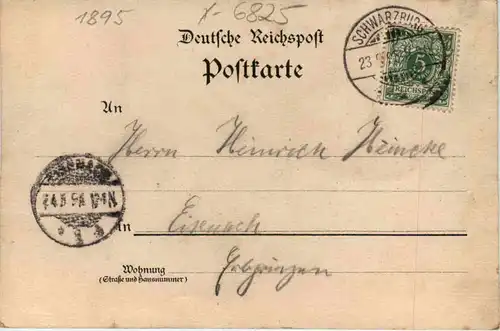 1895
x-6825
Deutsche Reichspost
Postkarte
SCHWARZBU
23
5
REICHSP
An
Herrn Heinrich Heincke
in
Eisenach
Wohnung
(Straße und Hausnummer)